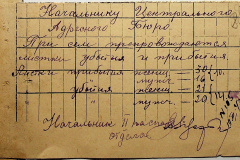 Начальнику Центрального
Адресного Бюро.
При сем препровождаются
листки убытия и прибытия.
Листки прибытия женщ — 30
" " мужч — 16
" убытия женщ — 21
" " мужч — 20
Начальник II паспорт
отделов